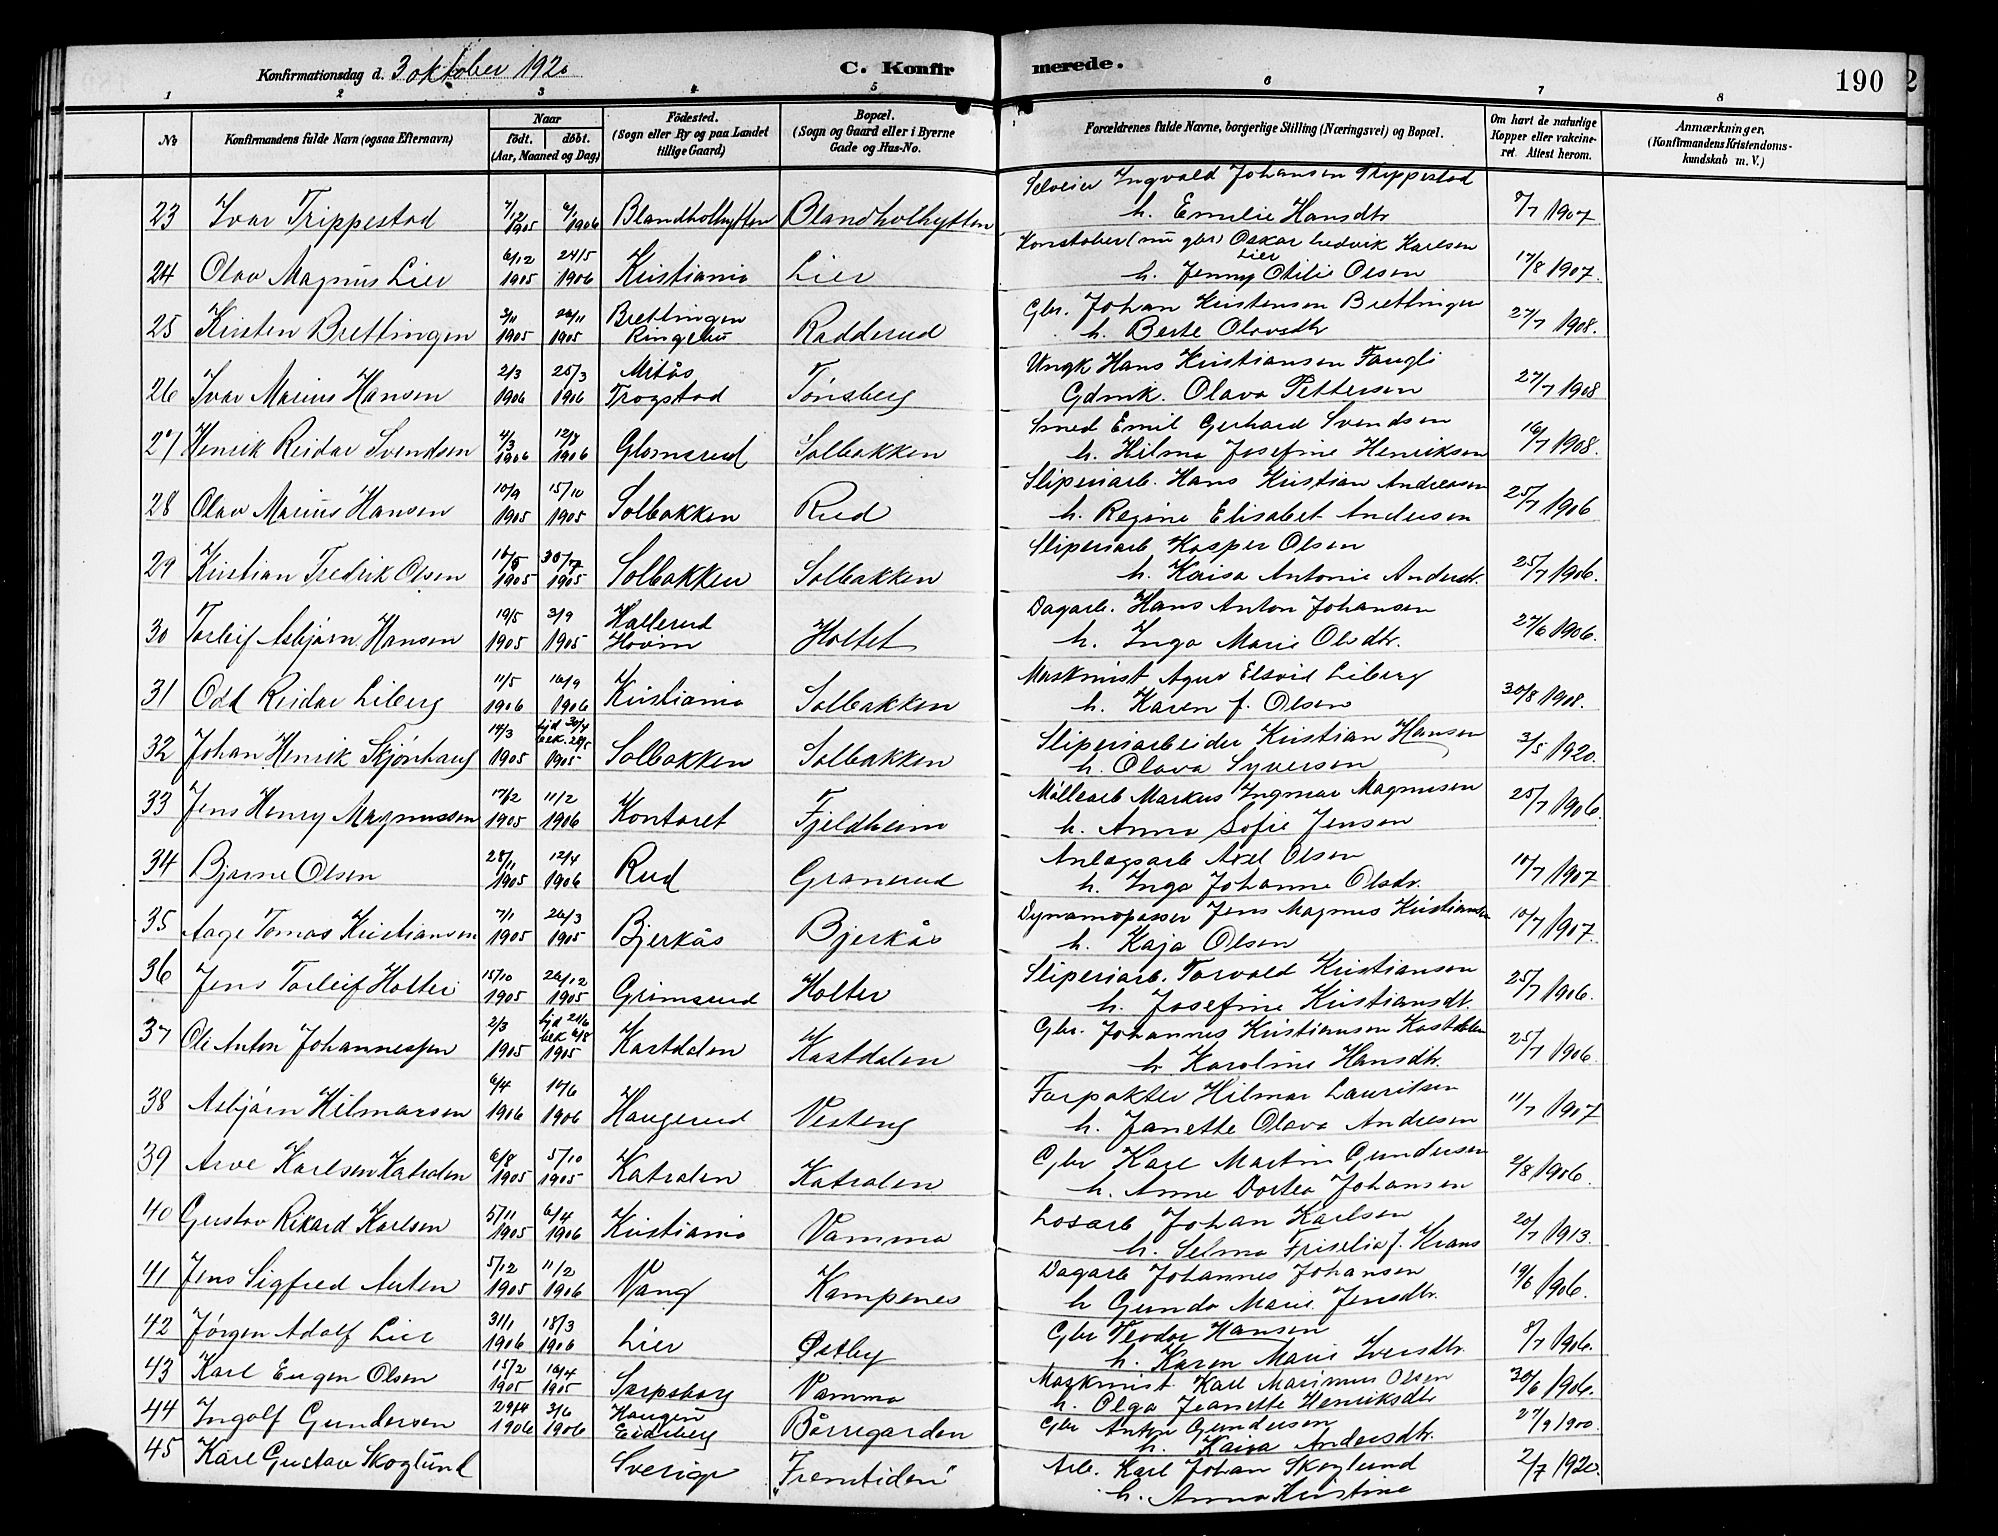 Konfirmationsdag d. 3 oktober 1920 C. Konfirmerede. 190
1 2 3 4 5 6 7 8
No
Konfirmandens fulde Navn (ogsaa Efternavn)
Naar
födt. döbt.
(Aar, Maaned og Dag)
Födested.
(Sogn eller By og paa Landet
tillige Gaard)
Bopæl.
(Sogn og Gaard eller i Byerne
Gade og Hus-No.
Forældrenes fulde Navne, borgerlige Stilling (Næringsvei) og Bopæl.
Om havt de naturlige
Kopper eller vakcine-
ret. Attest herom.
Anmærkninger.
(Konfirmandens Kristendoms-
kundskab m. V.)
23 Ivar Trippestad 7/12 1905 1906 Blandholhytten Blandholhytten Selveier Ingvald Johansen Trippestad
h. Emilie Hansdtr 7/7 1907
24 Olav Magnus Lier 6/12 1905 24/5 1906 Kristiania Lier Konstabel (nu gbr) Oskar Ludvik Karlsen Lier
h. Jenny Otilie Olsen 17/8 1907.
25 Kristen Brettingen 3/11 1905 26/11 1905 Brettingen Ringebu Radderud Gbr. Johan Kristensen Brettingen
h. Berte Olavsdtr 27/7 1908.
26 Ivar Marius Hansen 2/3 1906 25/3 1906 Mitås Trøgstad Tønsberg Ungk Hans Kristiansen Faugli
Gdmk. Olava Pettersen 27/7 1908
27 Henrik Reidar Svendsen 4/3 1906 12/8 1906 Glomsrud Solbakken Smed Emil Gerhard Svendsen
h. Hilma Josefine Henriksen 16/7 1908.
28 Olav Marius Hansen 10/9 1905 15/10 1905 Solbakken Rud Sliperiarb. Hans Kristian Andreasen
h. Regine Elisabet Andersen 25/7 1906
29 Kristian Fredrik Olsen 10/5 1905 30/7 1905 Solbakken Solbakken Sliperiarb Kasper Olsen
h. Kaisa Antonie Andersdtr. 25/7 1906.
30 Torleif Asbjørn Hansen 19/5 1905 3/9 1905 Hallerud Hovin Holtet Dagarb. Hans Anton Johansen
h. Inga Marie Olsdtr. 27/6 1906.
31 Odd Reidar Liberg 11/5 1906 16/9 1906 Kristiania Solbakken Maskinist Liberg
h. Karen f. Olsen 30/8 1908.
32 Johan Henrik Skjønhaug 14/3 1905 hjd 30/4 bek. 28/5 1905 Solbakken Solbakken Sliperiarbeider Kristian Hansen
h. Olava Syversen 3/5 1920.
33 Jens Henry Magnussen 17/12 1905 11/2 1906 Kontoret Fjeldheim Møllearb Markus Ingmar Magnusen
h. Anna Sofie Jensen 25/7 1906.
34 Bjarne Olsen 28/11 1905 12/4 1906 Rud Granerud Anlægsarb Axel Olsen
h. Inga Johanne Olsdr. 10/7 1907
35 Aage Tomas Kristiansen 7/1 1905 26/3 1905 Bjerkås Bjerkås Dynamopasser Jens Magnus Kristiansen
h. Kaja Olsen 10/7 1907.
36 Jens Torleif Holter 15/10 1905 26/12 1905 Grimsrud Holter Sliperiarb. Torvald Kristiansen
h. Josefine Kristiansdt. 25/7 1906.
37 Ole Anton Johannessen 2/3 1905 hjd 21/6 bek 6/8 1905 Kastdalen Kastdalen Gbr. Johannes Kristiansen Kastdalen
h. Karoline Hansdtr. 25/7 1906.
38 Asbjørn Hilmarsen 6/4 1906 10/6 1906 Haugerud Vesteng Forpakter Hilmar Lauritsen
h. Janette Olava Andresen 11/7 1907
39 Arve Karlsen Katralen 6/8 1905 5/10 1905 Katralen Katralen Gbr Karl Martin Gundersen
h. Anne Dortea Johansen 2/8 1906.
40 Gustav Rikard Karlsen 5/11 1905 6/4 1906 Kristiania Vamma Losarb Johan Karlsen
h. Selma Friselia f. Krans 20/7 1913.
41 Jens Sigfred Anten 5/12 1905 11/2 1906 Vang Kampenes Dagarb Johannes Johansen
h Gunda Marie Jensdtr. 19/6 1906.
42 Jørgen Adolf Lier 31/1 1906 18/3 1906 Lier Østby Gbr Teodor Hansen
h. Karen Marie Iversdtr. 8/7 1906.
43 Karl Eugen Olsen 15/2 1905 16/4 1905 Sarpsborg Vamma Maskinist Karl Marinius Olsen
h. Olga Jeanette Henriksdtr 30/6 1906.
44 Ingolf Gundersen 29/4 1906 3/6 1906 Haugen Eidsberg Børregarden Gbr Anton Gundersen
h. Kaisa Andersdtr. 27/9 1900.
45 Karl Gustav Skoglund Sverige "Fremtiden" Arb. Karl Johan Skoglund
h. Anna Kristina 2/7 1920.